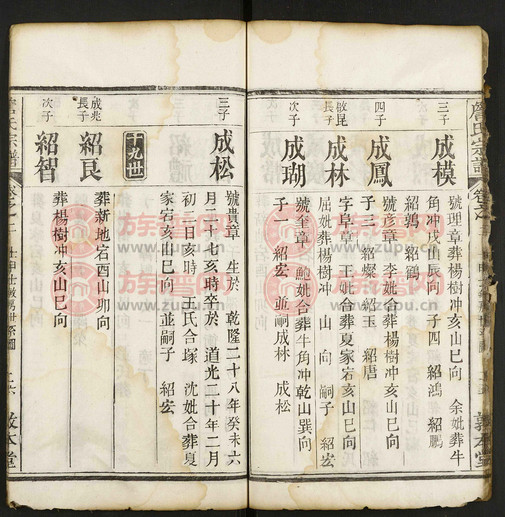 氏宗譜
敦本堂
三子 成模 號理章葬楊樹冲亥山巳向 余妣葬牛
角冲戌山辰向 子四 紹鴻 紹鵬
紹鶴
四子 成鳳 號彦章 李妣合葬楊樹冲亥山巳向
子三 紹燦 紹玉 紹唐
啟昆長子 成林 字阜章 王妣合葬夏家宕亥山巳向
屈妣葬楊樹冲 山 向 嗣子 紹宏
次子 成瑚 號奎章 鮑妣合葬牛角冲乾山巽向
子一 紹宏 並嗣成林 成松
三子 成松 號貴章 生於 乾隆二十八年癸未六
月二十七亥時卒於 道光二十年二月
初三日亥時 王氏合塚 沈妣合葬夏
家宕亥山巳向 並嗣子 紹宏
十九世
成兆長子 紹良 葬新地宕酉山卯向
次子 紹智 葬楊樹冲亥山巳向
氏宗譜
敦本堂
www.zupu.cn